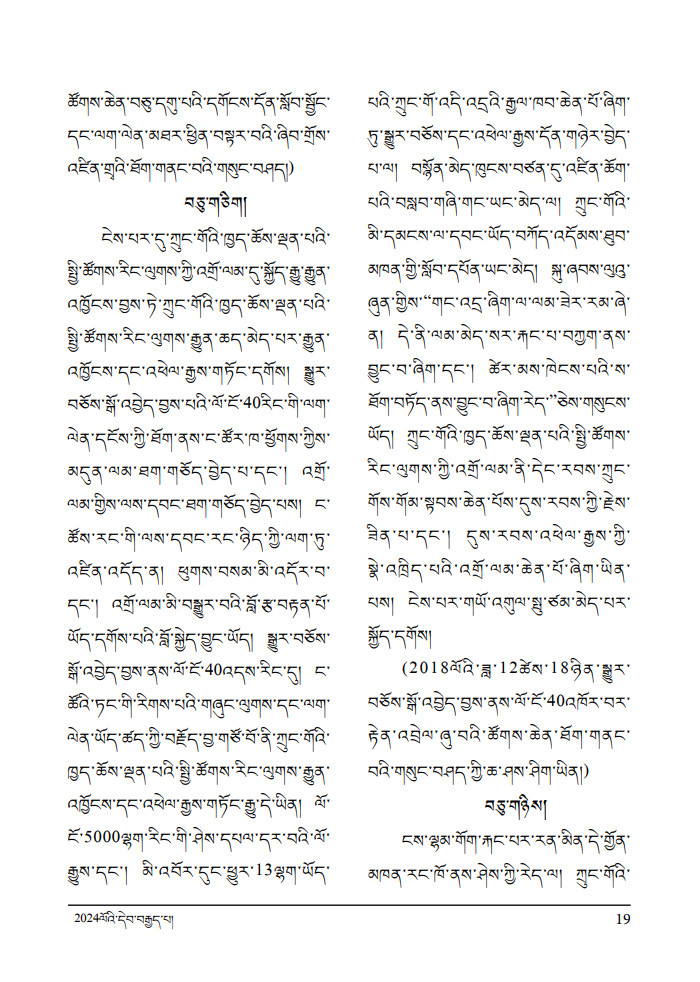 ཚོགས་ཆེན་བཅུ་དགུ་པའི་དགོངས་དོན་སློབ་སྦྱོང་
དང་ལག་ལེན་མཐར་ཕྱིན་བསྟར་བའི་ཞིབ་གྲོས་
འཛིན་གྲྭའི་ཐོག་གནང་བའི་གསུང་བཤད།)
བཅུ་གཅིག།
ངེས་པར་དུ་ཀྲུང་གོའི་ཁྱད་ཆོས་ལྡན་པའི་
སྤྱི་ཚོགས་རིང་ལུགས་ཀྱི་འགྲོ་ལམ་དུ་སྐྱོད་རྒྱུ་རྒྱུན་
འཁྱོངས་བྱས་ཏེ་ཀྲུང་གོའི་ཁྱད་ཆོས་ལྡན་པའི་
སྤྱི་ཚོགས་རིང་ལུགས་རྒྱུན་ཆད་མེད་པར་རྒྱུན་
འཁྱོངས་དང་འཕེལ་རྒྱས་གཏོང་དགོས། སྒྱུར་
བཅོས་སྒོ་འབྱེད་བྱས་པའི་ལོ་ངོ་40རིང་གི་ལག་
ལེན་དངོས་ཀྱི་ཐོག་ནས་ང་ཚོར་ཁ་ཕྱོགས་ཀྱིས་
མདུན་ལམ་ཐག་གཅོད་བྱེད་པ་དང་། འགྲོ་
ལམ་གྱིས་ལས་དབང་ཐག་གཅོད་བྱེད་པས། ང་
ཚོས་རང་གི་ལས་དབང་རང་ཉིད་ཀྱི་ལག་ཏུ་
འཛིན་འདོད་ན། ཕུགས་བསམ་མི་འདོར་བ་
དང་། འགྲོ་ལམ་མི་བསྒྱུར་བའི་བློ་རྩ་བརྟན་པོ་
ཡོད་དགོས་པའི་བློ་སྐྱེད་བྱུང་ཡོད། སྒྱུར་བཅོས་
སྒོ་འབྱེད་བྱས་ནས་ལོ་ངོ་40འདས་རིང་དུ། ང་
ཚོའི་ཏང་གི་རིགས་པའི་གཞུང་ལུགས་དང་ལག་
ལེན་ཡོད་ཚད་ཀྱི་བརྗོད་བྱ་གཙོ་བོ་ནི་ཀྲུང་གོའི་
ཁྱད་ཆོས་ལྡན་པའི་སྤྱི་ཚོགས་རིང་ལུགས་རྒྱུན་
འཁྱོངས་དང་འཕེལ་རྒྱས་གཏོང་རྒྱུ་དེ་ཡིན། ལོ་
ངོ་5000ལྷག་རིང་གི་ཤེས་དཔལ་དར་བའི་ལོ་
རྒྱུས་དང་། མི་འབོར་དུང་ཕྱུར་13ལྷག་ཡོད་
པའི་ཀྲུང་གོ་འདི་འདྲའི་རྒྱལ་ཁབ་ཆེན་པོ་ཞིག་
ཏུ་སྒྱུར་བཅོས་དང་འཕེལ་རྒྱས་དོན་གཉེར་བྱེད་
པ་ལ། བསྙོན་མེད་ཁུངས་བཙན་དུ་འཛིན་ཆོག་
པའི་བསླབ་གཞི་གང་ཡང་མེད་ལ། ཀྲུང་གོའི་
མི་དམངས་ལ་དབང་ཡོད་བཀོད་འདོམས་ཐུབ་
མཁན་གྱི་སློབ་དཔོན་ཡང་མེད། སྐུ་ཞབས་ལུའུ་
ཞུན་གྱིས་“གང་འདྲ་ཞིག་ལ་ལམ་ཟེར་རམ་ཞེ་
ན། དེ་ནི་ལམ་མེད་སར་རྐང་པ་བཀྱག་ནས་
བྱུང་བ་ཞིག་དང་། ཚེར་མས་ཁེངས་པའི་ས་
ཐོག་བཏོད་ནས་བྱུང་བ་ཞིག་རེད་”ཅེས་གསུངས་
ཡོད། ཀྲུང་གོའི་ཁྱད་ཆོས་ལྡན་པའི་སྤྱི་ཚོགས་
རིང་ལུགས་ཀྱི་འགྲོ་ལམ་ནི་དེང་རབས་ཀྲུང་
གོས་གོམ་སྟབས་ཆེན་པོས་དུས་རབས་ཀྱི་རྗེས་
ཟིན་པ་དང་། དུས་རབས་འཕེལ་རྒྱས་ཀྱི་
སྣེ་འཁྲིད་པའི་འགྲོ་ལམ་ཆེན་པོ་ཞིག་ཡིན་
པས། ངེས་པར་གཡོ་འགུལ་སྤུ་ཙམ་མེད་པར་
སྐྱོད་དགོས།
(2018ལོའི་ཟླ་12ཚེས་18ཉིན་སྒྱུར་
བཅོས་སྒོ་འབྱེད་བྱས་ནས་ལོ་ངོ་40འཁོར་བར་
རྟེན་འབྲེལ་ཞུ་བའི་ཚོགས་ཆེན་ཐོག་གནང་
བའི་གསུང་བཤད་ཀྱི་ཆ་ཤས་ཤིག་ཡིན།)
བཅུ་གཉིས།
ངས་ལྷམ་གོག་རྐང་པར་རན་མིན་དེ་གྱོན་
མཁན་རང་ཁོ་ནས་ཤེས་ཀྱི་རེད་ལ། ཀྲུང་གོའི་
2024ལོའི་དེབ་བརྒྱད་པ།
19